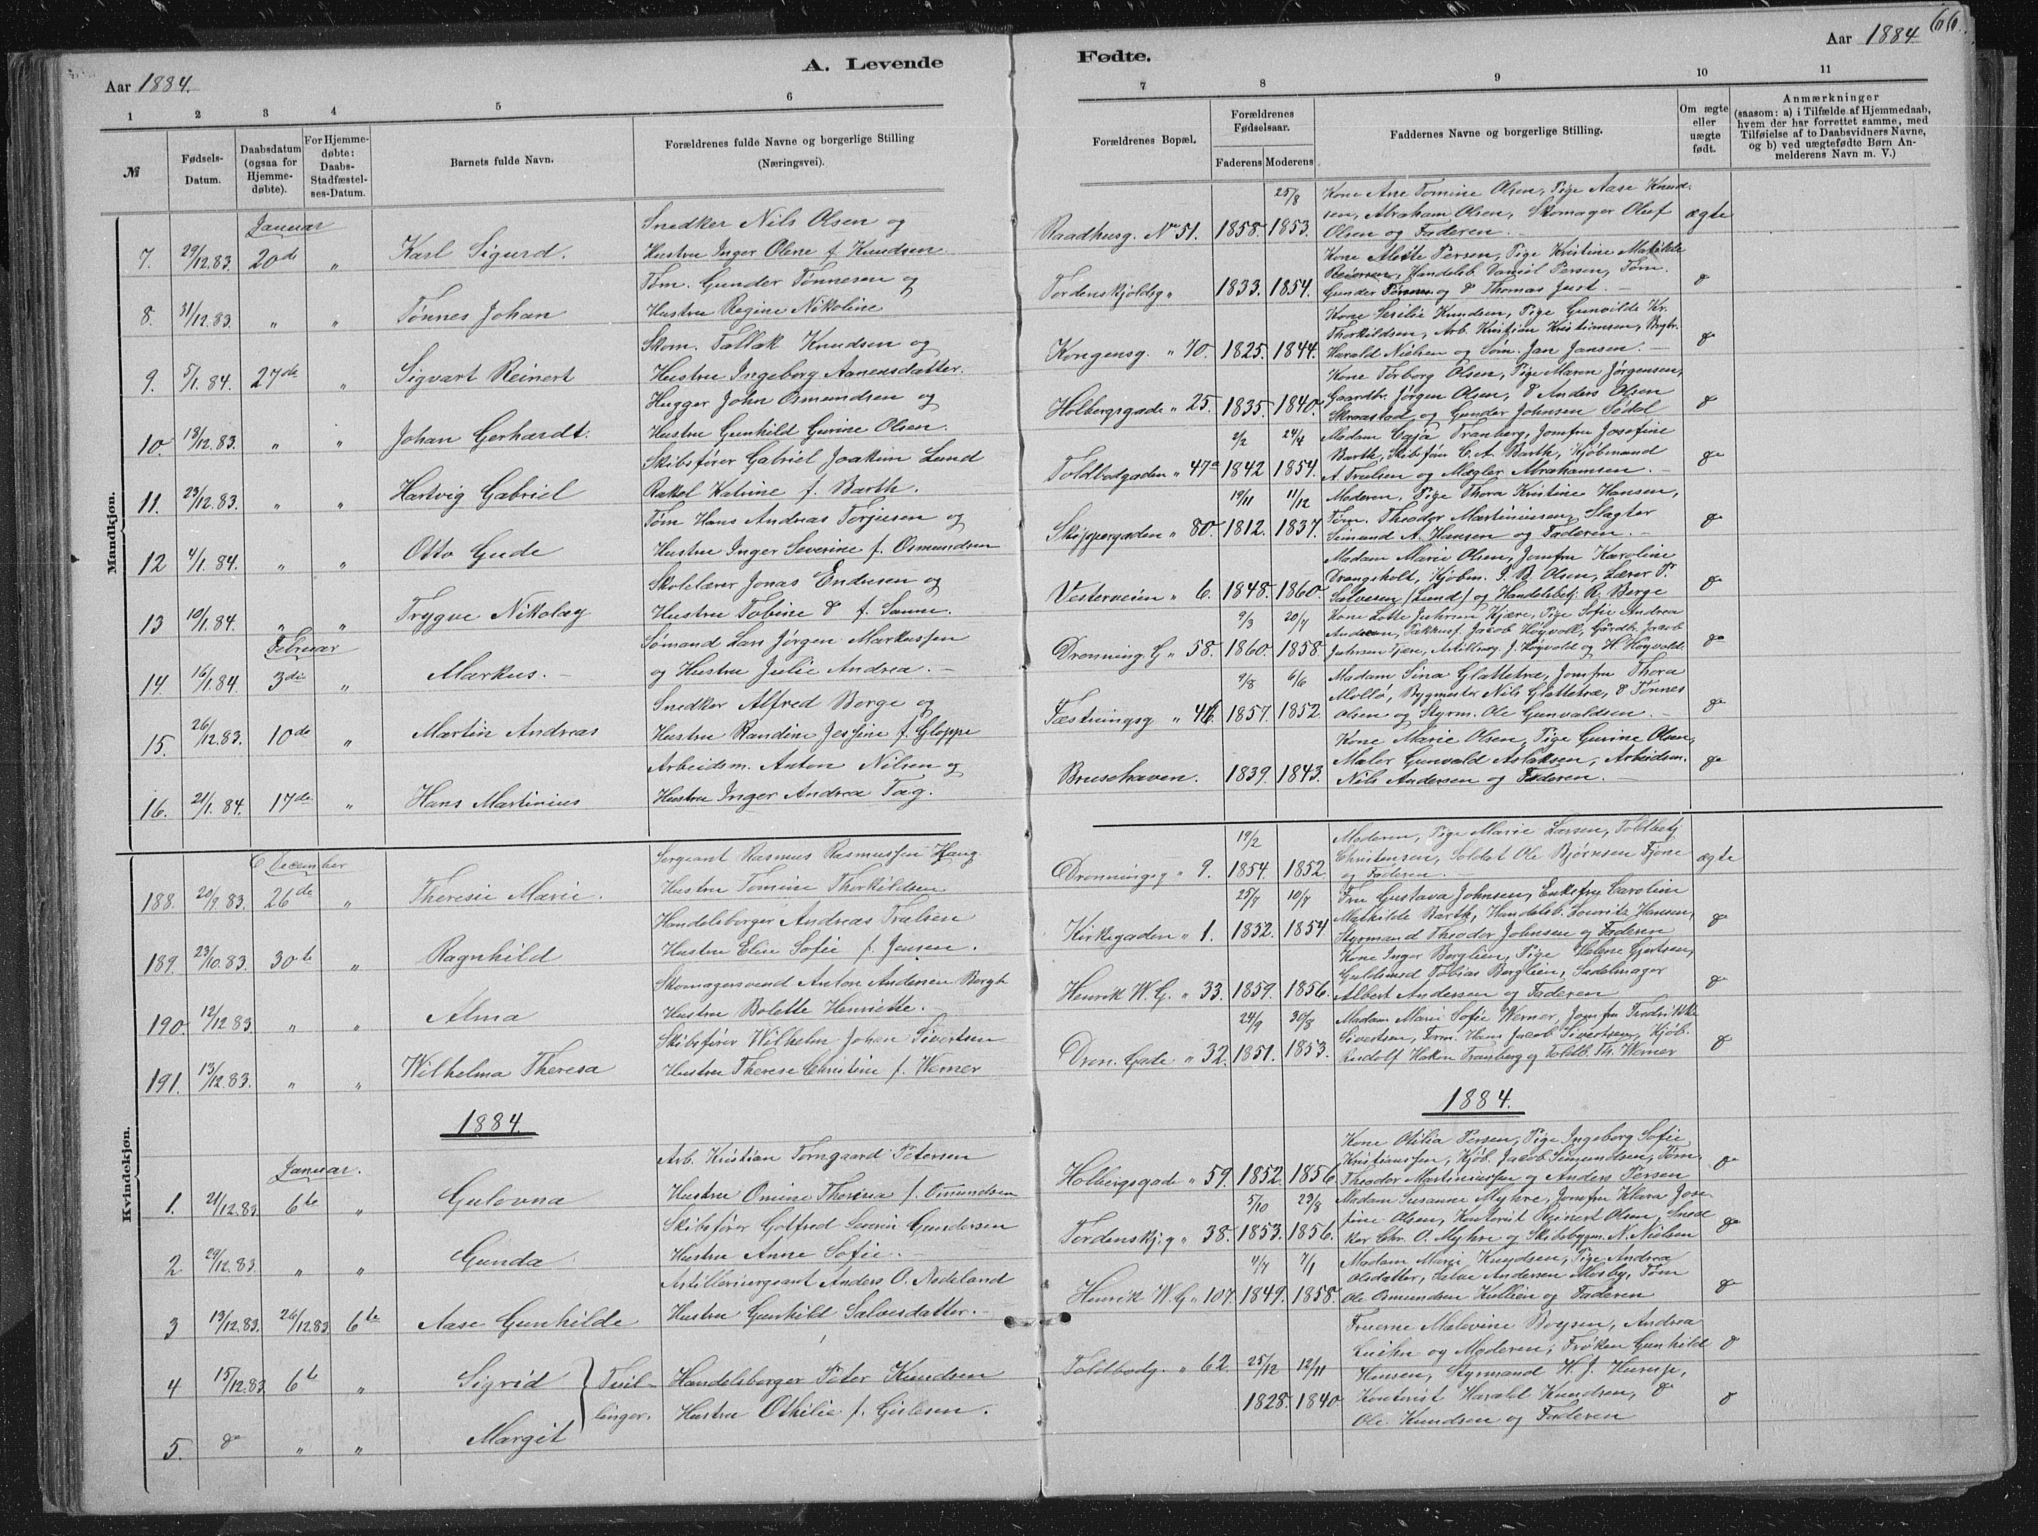 66.
Aar 1884.
A. Levende
Fødte.
Aar 1884.
1 2 3 4 5 6 7 8 9 10 11
№
Fødsels-Datum.
Daabsdatum (ogsaa for Hjemmedøbte).
For Hjemmedøbte: Daabs-Stadfæstelses-Datum.
Barnets fulde Navn.
Forældrenes fulde Navne og borgerlige Stilling (Næringsvei).
Forældrenes Bopæl.
Forældrenes Fødselsaar.
Faderens. Moderens.
Faddernes Navne og borgerlige Stilling.
Om ægte eller uægte født.
Anmærkninger (saasom: a) i Tilfælde af Hjemmedaab, hvem der har forrettet samme, med Tilføielse af to Daabsvidners Navne, og b) ved uægtefødte Børn Anmelderens Navn m. V.)
Mandkjøn.
Januar
7. 29/12.83. 20de " Karl Sigurd.
Snedker Nils Olsen og
Hustru Inger Olene f. Knudsen
Raadhusg. No 51. 1858. 25/8 1853.
Kone Ane Tomine Olsen, Pige Aase Knud-
sen, Abraham Olsen, Skomager Oluf
Olsen og Faderen.
ægte
8. 31/12.83. " " Tønnes Johan
Tøm. Gunder Tønnesen og
Hustru Regine Nikoline
Tordenskjoldsg " 1833. 1854.
Kone Persen, Pige Kristine Matilde
Reiersen, Handelsb. Daniel Persen, Tøm.
Gunder og Thomas Just.
9. 5/1.84. 27de " Sigvart Reinert
Skom. Tallak Knudsen og
Hustru Ingeborg Aanensdatter.
Kongensg. " 70. 1825. 1844.
Kone Serelie Knudsen, Pige Gunvilde Kr.
Thorkildsen, Arb. Kristian Kristiansen,
Harald Nielsen og Søm. Jan Jansen.
10. 13/12.83. " " Johan Gerhardt.
Hugger John Osmundsen og
Hustru Gunhild Gurine Olsen.
Holbergsgade " 25. 1835. 1840.
Kone Torborg Olsen, Pige Maren Jørgensen,
Gaardbr. Jørgen Olsen, Anders Olsen
Skraastad og Gunder Johnsen Sødal
11. 23/12.83. " " Hartvig Gabriel
Skibsfører Gabriel Joakim Lund
Rakel Katrine f. Barth.
Toldbodgaden " 47a 2/2 1842 24/4 1854.
Madam Caja Tranberg, Jomfru Josefine
Barth, Skibsfører C. A. Barth, Kjøbmand
A. Truelsen og Mægler Abrahamsen.
12 4/1.84. " " Otto Gude
Tøm Hans Andreas Torjusen og
Hustru Inger Severine f. Osmundsen
Skippergaden " 80. 19/11 1812. 11/12 1837.
Moderen, Pige Thora Kristine Hansen,
Tøm. Theodor Martiniusen, Slagter
Simund A. Hansen og Faderen.
13 10/1.84. " " Trygve Nikolay
Skolelærer Jonas Endresen og
Hustru Tobine f. Sanne.
Vesterveien " 6. 1848. 1860.
Madam Marie Olsen, Jomfru Karoline
Drangsholt, Kjøbm. S. B. Olsen, Lærer P.
Salvesen (Lund) og Handelsbetj. R. Berge
Februar
14. 16/1.84. 3die " Markus.
Sømand Lars Jørgen Markussen
og Hustru Julie Andrea.
Dronning. G " 58. 9/3 1860. 20/7 1858.
Kone Lotte Juhrsen Kjære, Pige Sofie Andrea
Andersen, Jacob Høgvold, Gaardb. Jacob
Juhrsen Tjære, J. Høgvold og H. Høgvold.
15. 26/12.83. 10de " Martin Andreas
Snedker Alfred Borge og
Hustru Randine Jessine f. Gloppe
Fæstningsg " 46. 9/8 1857. 6/6 1852
Madam Sina Glattetræ, Jomfru Thora
Mollø, Bygmester Nils Glattetræ, Tønnes
Olsen og Styrm. Ole Gunvaldsen.
16. 21/1.84. 17de " Hans Martinius
Arbeidsm. Anton Nilsen og
Hustru Inger Andrea Tag.
Brusehaven. 1839. 1843.
Kone Marie Olsen, Pige Gurine Olsen,
Maler Gunvald Aslaksen, Arbeidsm.
Nils Andersen og Faderen.
Kvindekjøn.
December
188. 20/9.83. 26de " Theresie Marie.
Sergeant Rasmus Rasmussen Haug
Hustru Tomine Thorkildsen
Dronningsg " 9. 19/2 1854. 1852
Moderen, Pige Marie Larsen, Toldbetj
Christensen, Soldat Ole Bjørnsen Fjone
og Faderen.
ægte
189. 23/10.83. 30te " Ragnhild
Handelsborger Andreas Tralsen
Hustru Elise Sofie f. Jensen.
Kirkegaden " 1. 25/7 1852. 10/7 1854
Fru Gustava Johnsen, Enkefru Caroline
Mathilde Barth, Handelsb. Lourits Hansen,
Styrmand Theodor Johnsen og Faderen
190. 12/12.83 " " Alma
Skomagersvend Anton Andersen Bergh
Hustru Bolette Henriette.
Henrik W. G. " 33. 1859. 1856.
Kone Inger Berglien, Pige Helene Gjertsen,
Guldsmed Tobias Berglien, Sadelmager
Albert Andersen og Faderen
191. 13/12.83. " " Wilhelma Theresa
Skibsfører Wilhelm Johan Sivertsen
Hustru Therese Christine f. Werner
Dron. Gade " 32. 24/9 1851. 30/8 1853.
Madam Marie Sofie Werner, Jomfru Fredrikke
Sivertsen, Hans Jacob Sivertsen, Kjøb.
Rudolf Hakin Tranberg og Toldb. Th. Werner
1884.
1884.
Januar.
1. 21/12.83 6te " Gulovna
Arb. Kristian Torngaard Petersen
Hustru Omine Theresia f. Omundsen
Holbergsgade " 59. 1852. 1856
Kone Otilia Persen, Pige Ingeborg Sofie
Kristiansen, Kjøb. Jacob Simundsen, Tøm.
Theodor Martiniussen og Anders Persen
2 29/12.83. " " Gunda
Skibsfører Gotfred Severin Gundersen
Hustru Anne Sofie.
Tordenskj.g " 38. 5/10 1853. 23/8 1856.
Madam Susanne Myhre, Jomfru Klara Jose-
fine Olsen, Kontorist Reinert Olsen, Sned
ker Chr. O. Myhre og Skibsbygm. N. Nielsen
3 13/12.83. 26/12.83 6te Aase Gunhilde
Artillerisergeant Anders O. Nodeland
Hustru Gunhild Salvesdatter.
Henrik W G " 107. 4/7 1849. 7/1 1858.
Madam Marie Knudsen, Pige Andrea
Olsdatter, Salve Andersen Mosby, Tøm
Ole Osmundsen Kullien og Faderen
4 15/12.83 6te " Sigrid
5. do " " Margit
Tvillinger.
Handelsborger Peter Knudsen
Hustru Othilie f. Gislesen.
Toldbodg. " 62. 25/12 1828. 12/11 1840
Fruerne Malevine Boysen, Andrea
og Moderen, Frøken Gunhild
Hansen, Styrmand H. J. Hurup,
Kontorist Harald Knudsen,
Ole Knudsen og Faderen